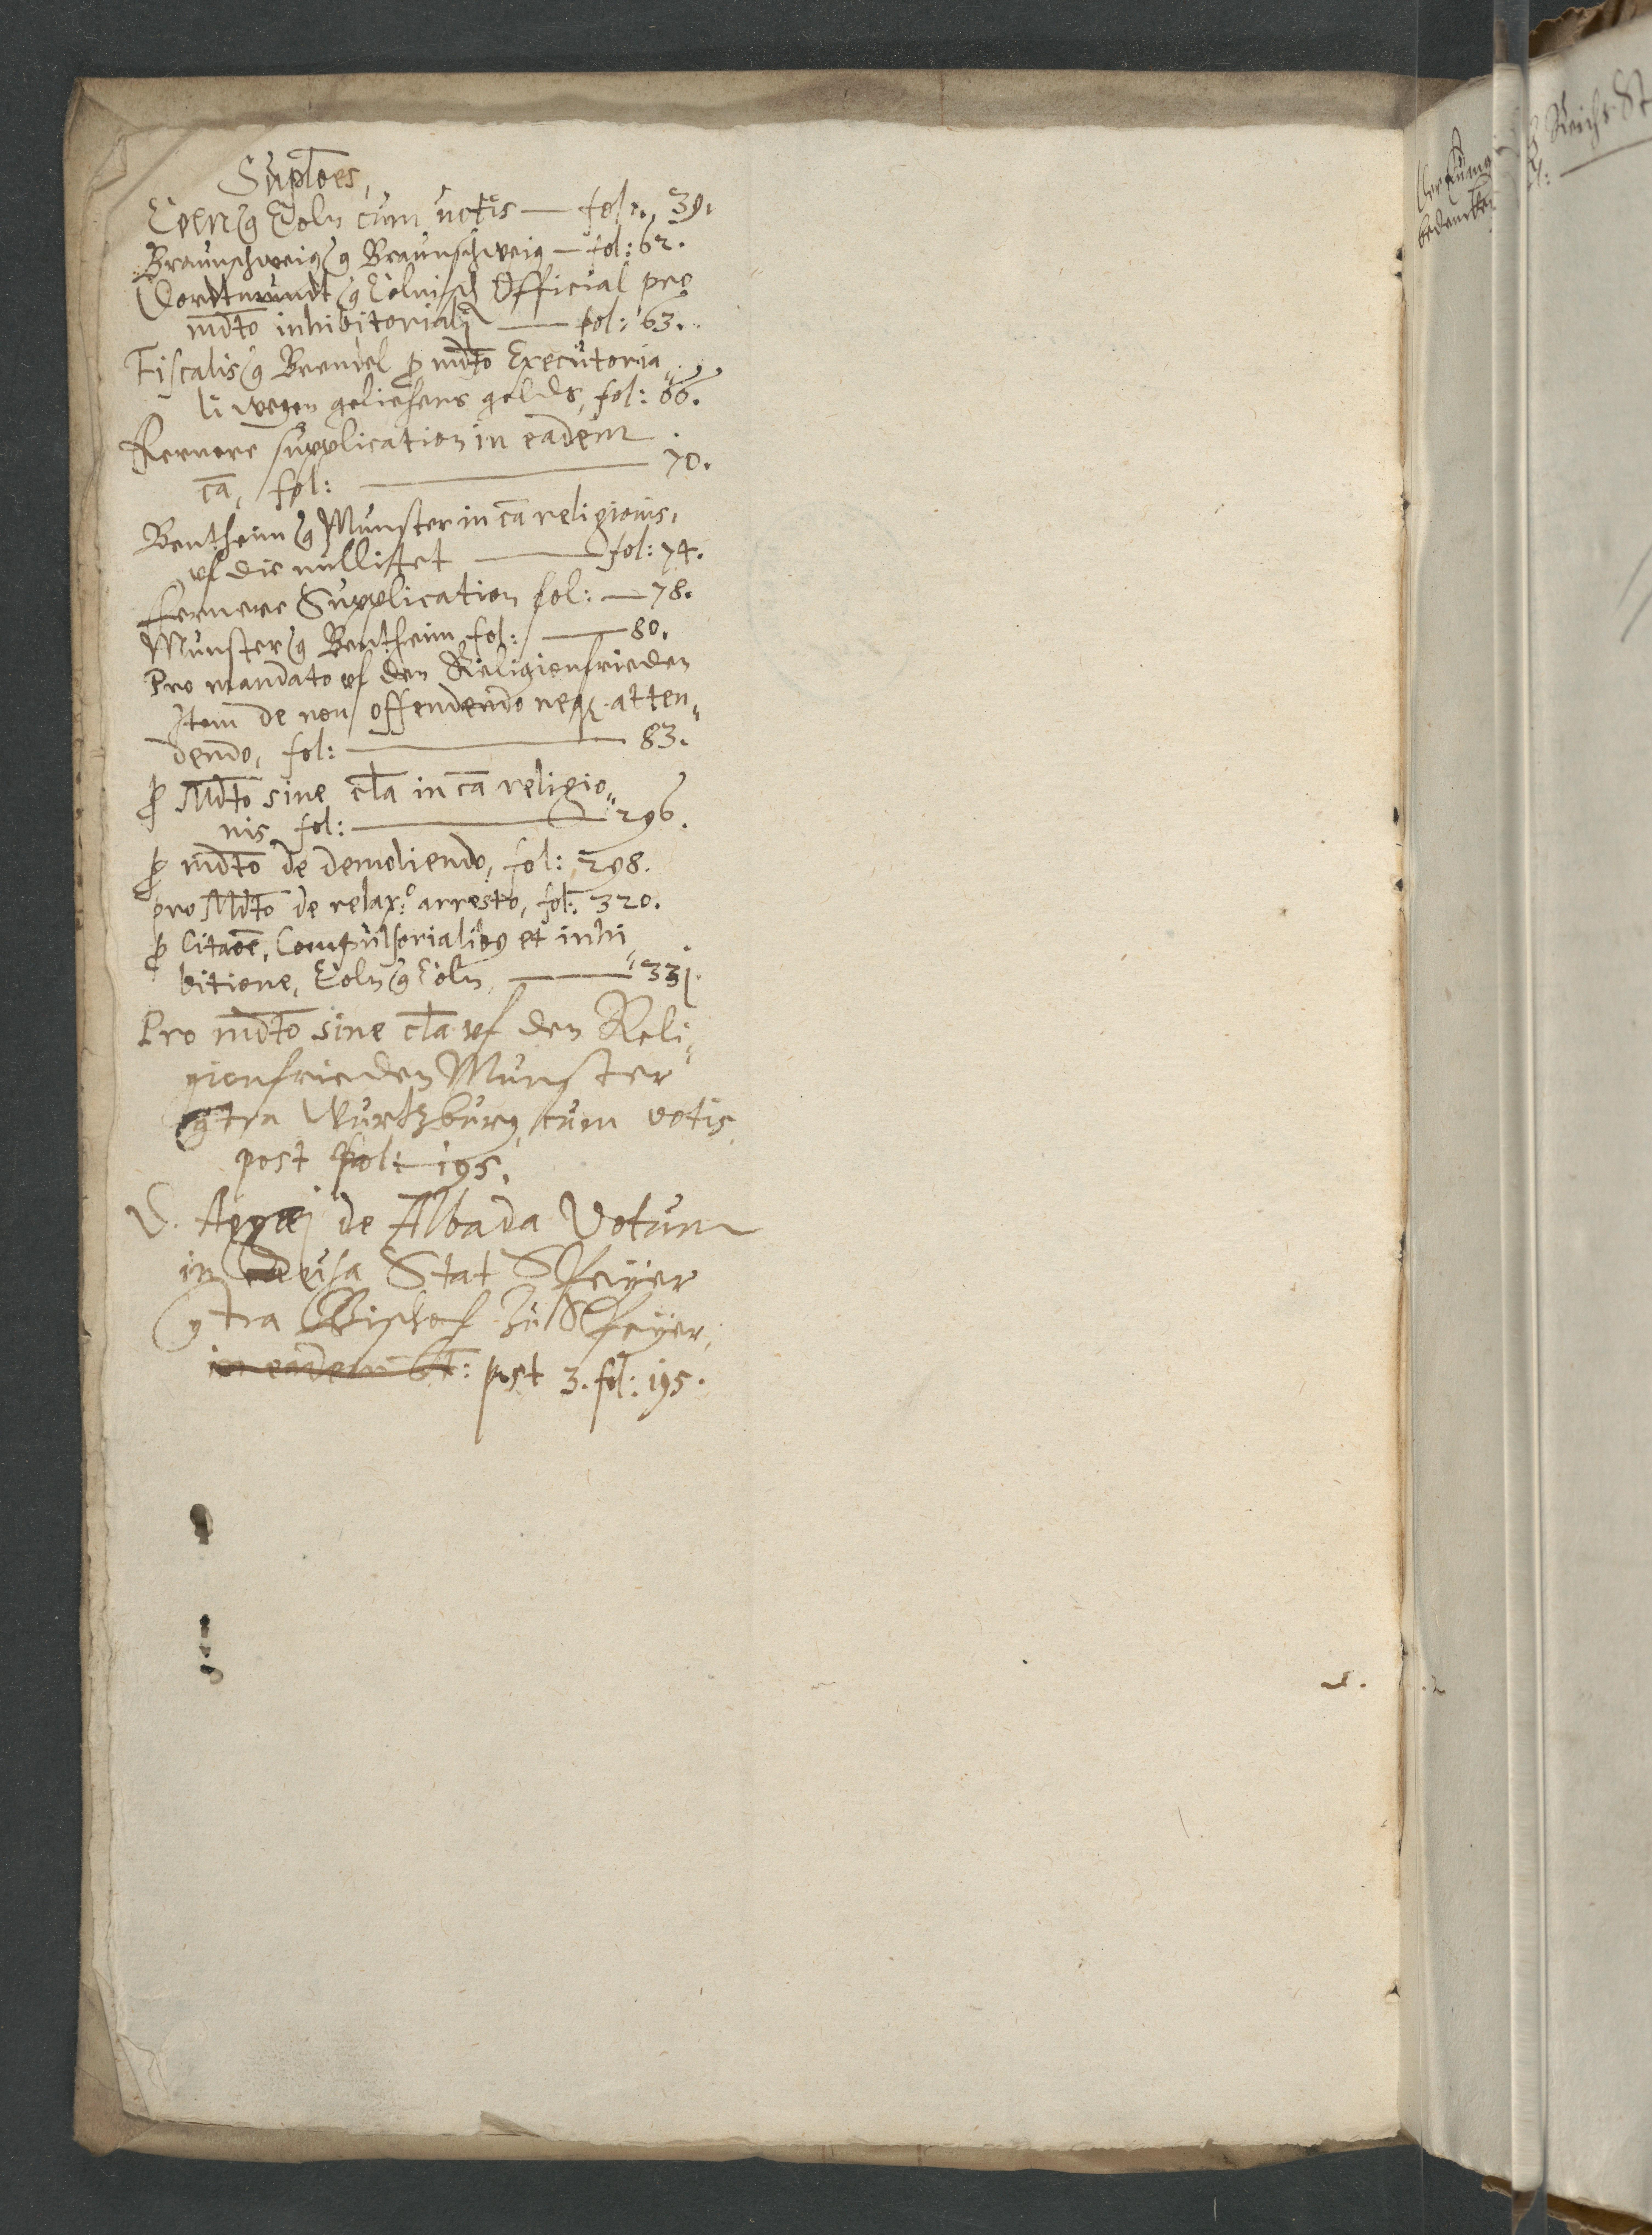 Suplōes,
Coen ɔ Cöln cum uotis — fol:, 39.
Braunschweig ɔ Braunschweig — fol: 62.
Dordtmundt ɔ Cölnisch Official pro
mdto inhibitoriali — fol: 63.
Fiscalis ɔ Brendel ꝓ mdto Executoria„
li wegen geliehens gelds, fol: 66.
Fernere supplication in eadem
cā, fol: — 70.
Bentheim ɔ Munster in cā religionis,
vf die nullitet — fol: 74.
fernere Supplication fol: — 78.
Munster ɔ Bentheim, fol: — 80.
Pro mandato vf den Religionfrieden
Item de non offendendo neq; atten„
dendo, fol: — 83.
ꝓ Mdto sine cla in cā religio„
nis, fol: — 296.
ꝓ mdto de demoliendo, fol: 298.
pro Mdto de relax:º arresto, fol: 320.
ꝓ Citaōe, Compulsorialibꝰ et inhi„
bitione, Cöln ɔ Cöln, — 331.
Pro mdto sine cla vf den Reli„
gionfrieden Munster
ɔtra Wurtzburg, cum votis,
post fol: 195.
D. Aggæj de Albada Votum
in causa Stat Speyer
ɔtra Bischof zu Speyer,
in eadem : post 3. fol: 195.
bedencken
Reichs St